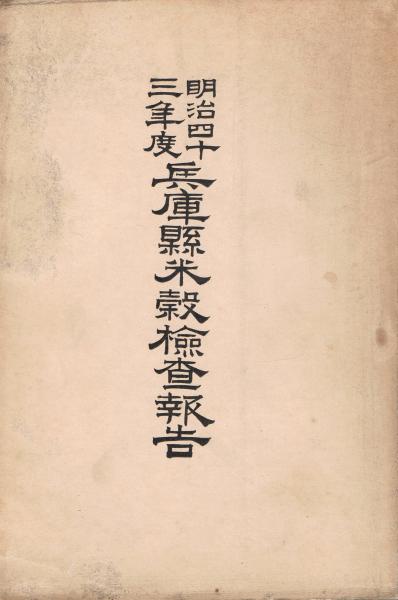 明治四十
三年度
兵庫縣米穀檢查報告